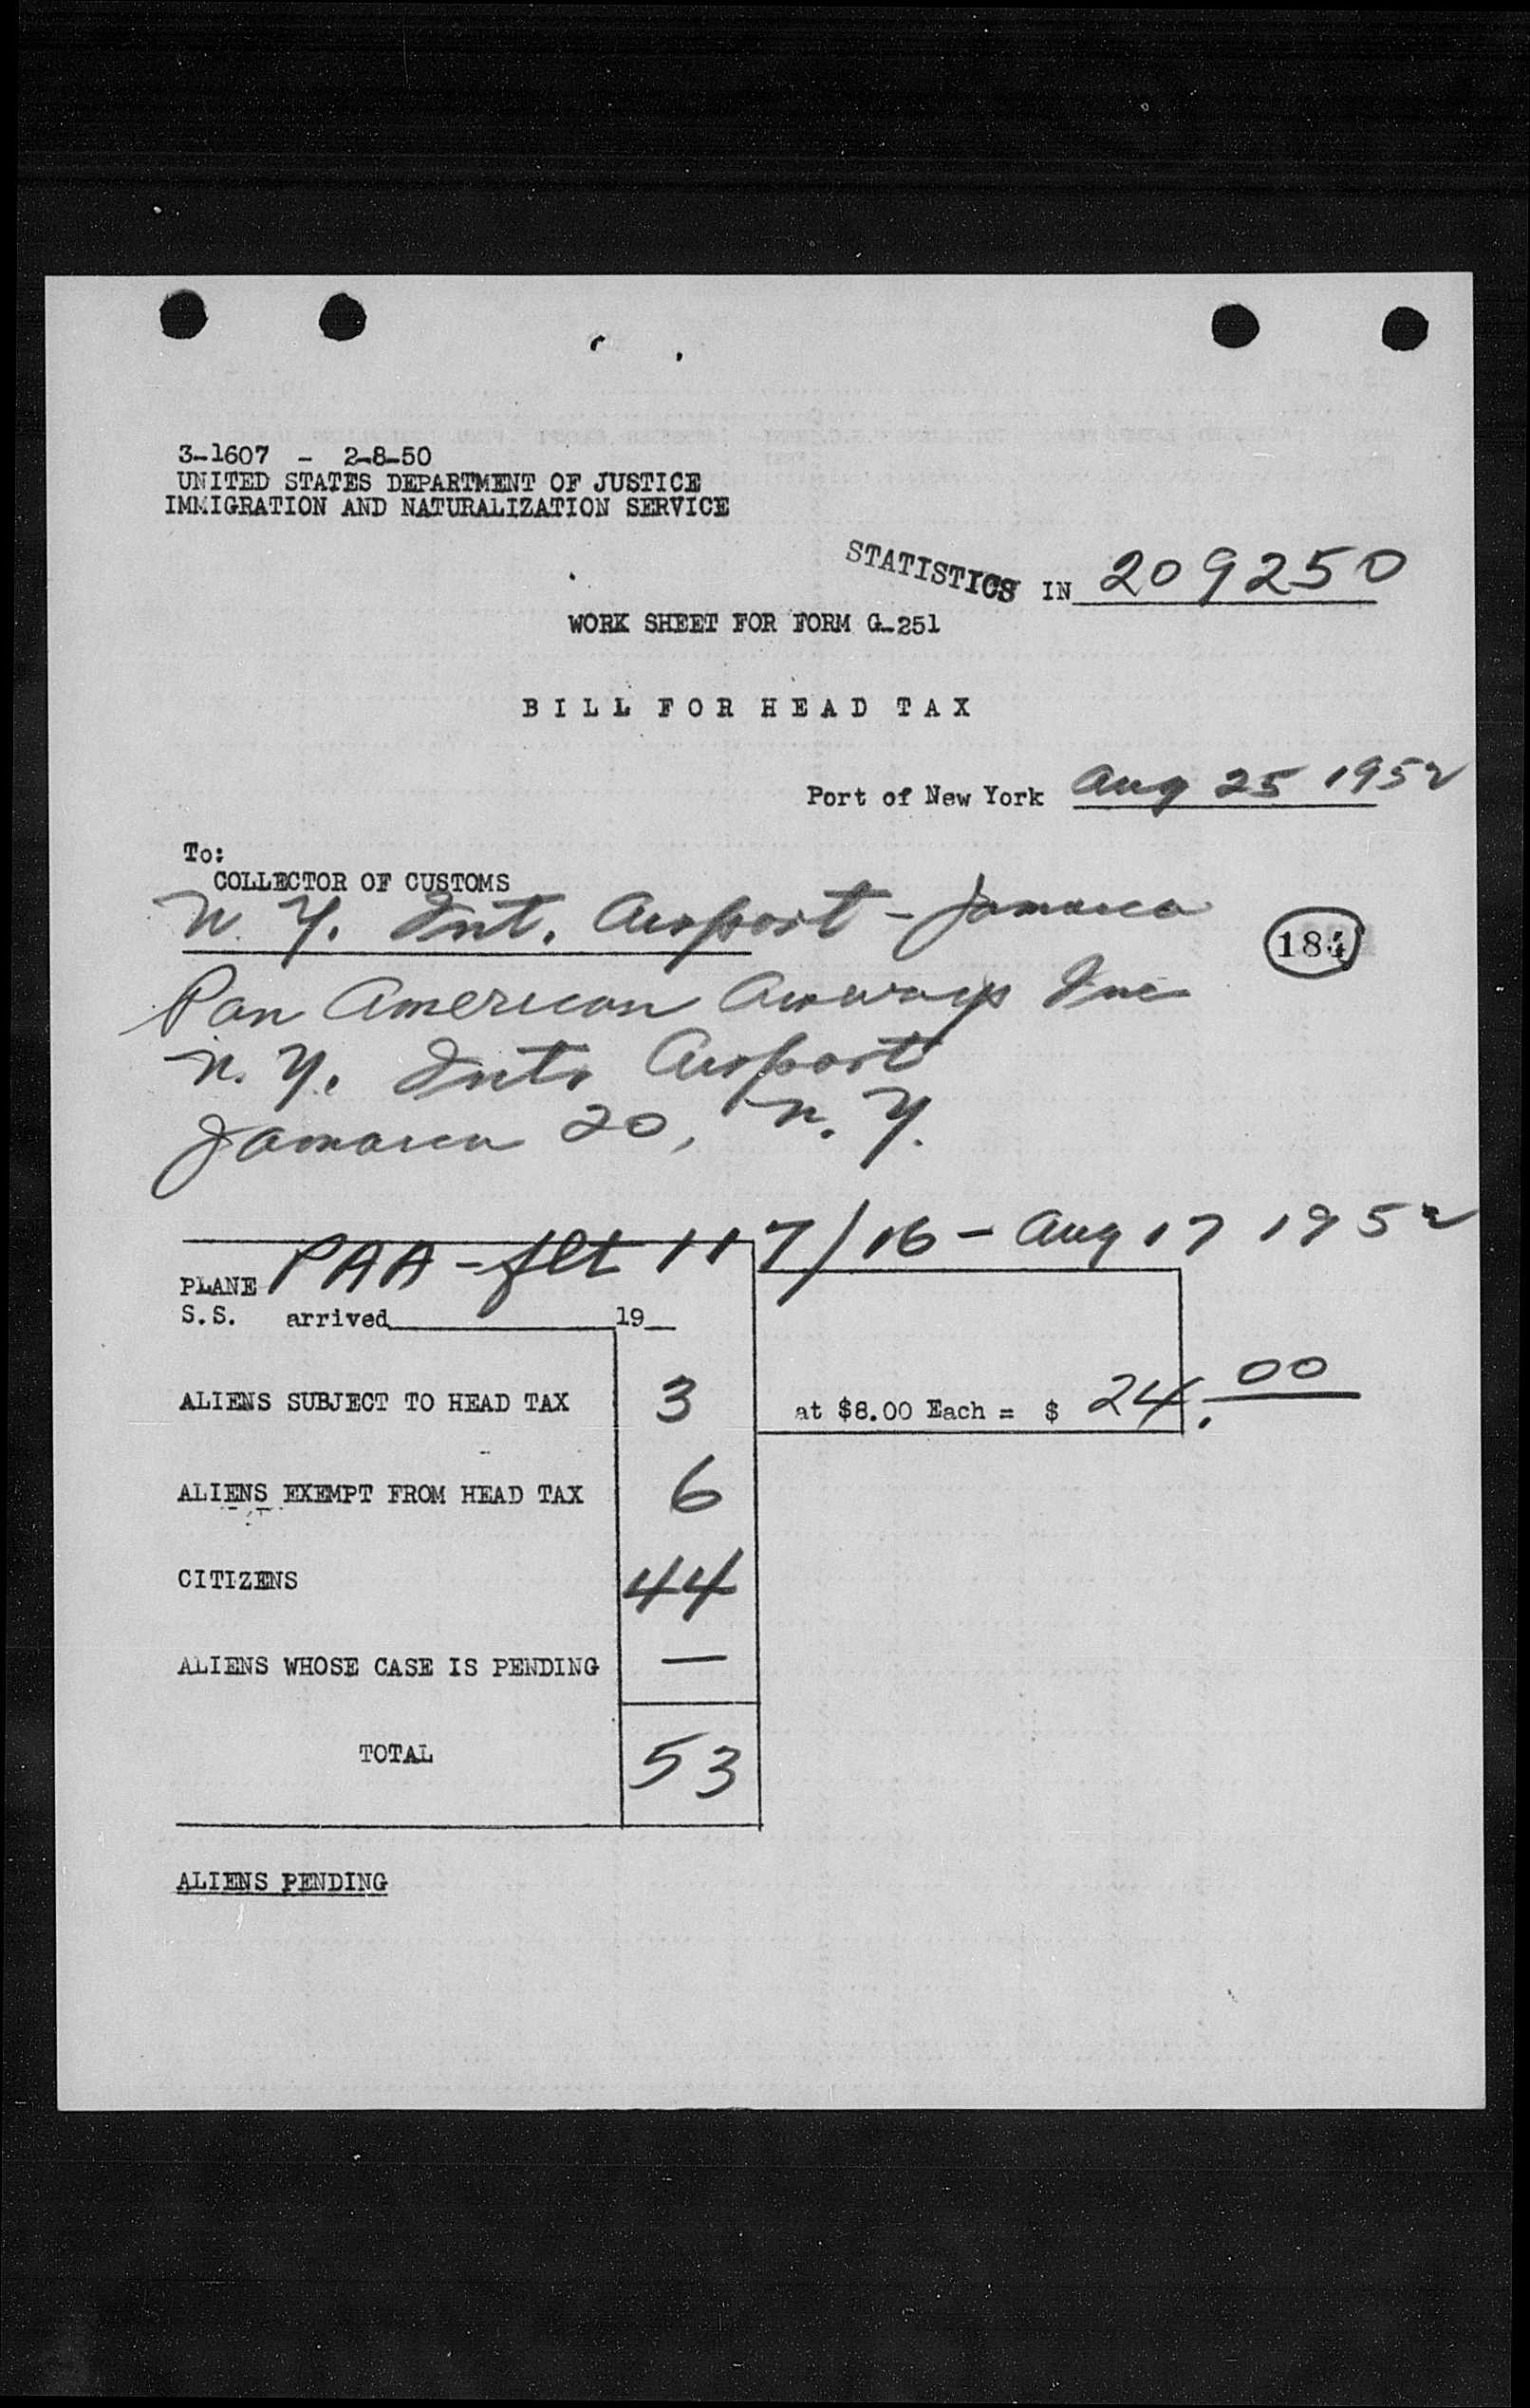 3-1607 - 2-8-50
UNITED STATES DEPARTMENT OF JUSTICE
IMMIGRATION AND NATURALIZATION SERVICE
STATISTICS IN 209250
WORK SHEET FOR FORM G-251
BILL FOR HEAD TAX
Port of New York Aug 25 1952
To:
COLLECTOR OF CUSTOMS
N. Y. Int. Airport - Jamaica
184
Pan American Airways Inc
N. Y. Int. Airport
Jamaica 20, N. Y.
PLANE PAA - flt 117/16 - Aug 17 1952
S.S. arrived 19
ALIENS SUBJECT TO HEAD TAX 3 at $8.00 Each = $ 24.00
ALIENS EXEMPT FROM HEAD TAX 6
CITIZENS 44
ALIENS WHOSE CASE IS PENDING —
TOTAL 53
ALIENS PENDING